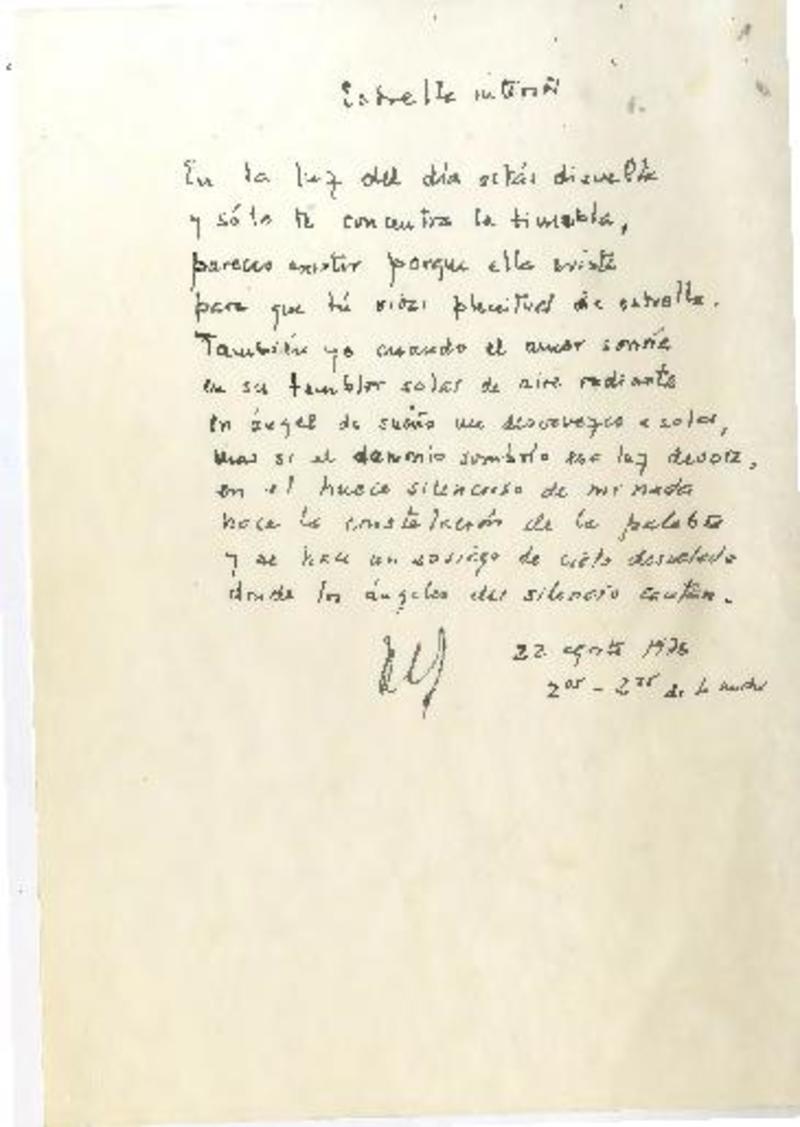 Estrella interior
En la luz del día estás disuelta
y sólo te concentra la tiniebla,
pareces existir porque ella existe
para que tú seas plenitud de estrella.
También yo cuando el amor sonríe
en su temblor solar de aire radiante
en ángel de sueño me desvanezco a solas,
mas si el demonio sombrío esa luz devora,
en el hueco silencioso de mi nada
nace la constelación de la palabra
y se hace un sosiego de cielo desvelado
donde los ángeles del silencio cantan.
22 agosto 1976
2⁰⁵ - 2³⁵ de la noche